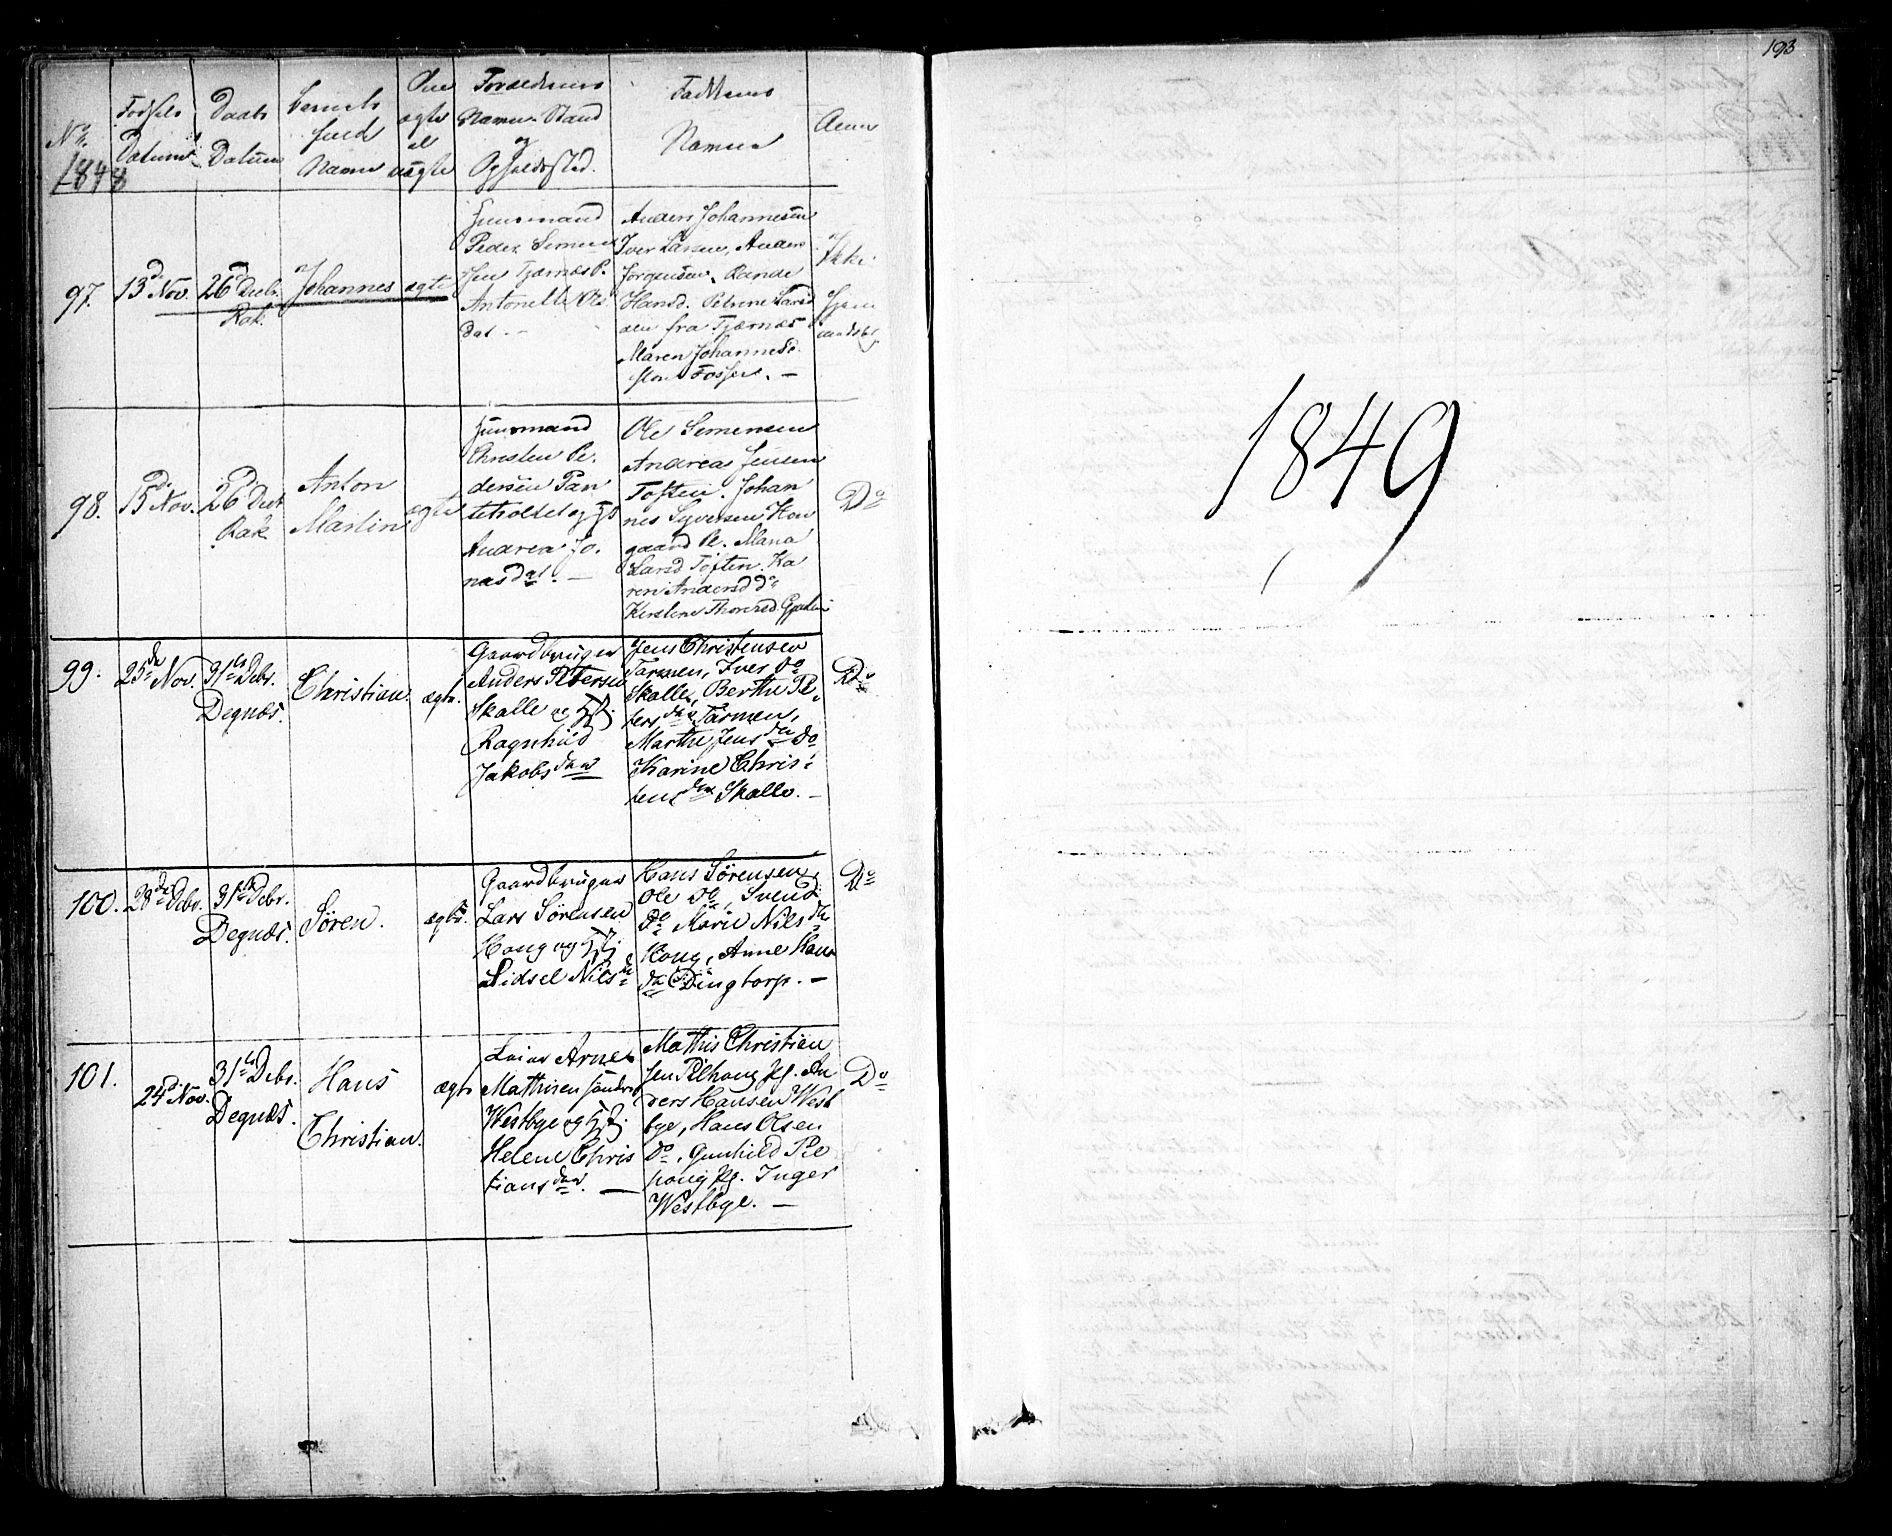 No
1848
Fødsels
Datum
Daabs
Datum
Barnets
fuld
Navne
Om
ægte
el
uægte
Forældrenes
Navne Stand
og
Opholdssted.
Faddernes
Navne
Anm
97.
13de Nov.
26d Decbr.
Rak.
Johannes
ægte
Huusmand
Peder Simen
sen Tjernæs P.
Antonette Ols
dat. -
Anders Johannesen
Iver Larsen, Anders
Jørgensen, Rande
Hansd. Petrine Lars
fra Tjærnæs
Maren Johannesd.
Fossen. -
Ikke
98.
15de Nov.
26d Decbr
Rak
Anton
Martin
ægte
Huusmand
Christen Pe.
dersen Tan
og Hst
Andrea Jo.
nasdat. -
Ole Simensen
Andreas Jensen
Toften. Johan
nes Syversen Hou
gaard Pe. Maria
Larsd Toften. Ka
ren Andersd do
Kerstine Thoresd.
Do
99.
25de Nov.
31te Debr.
Degnæs.
Christian.
ægte.
Gaardbruger
Anders Petersen
Skalle og Hst
Ragnhild
Jakobsdatter
Jens Christensen
Tarmen, Iver do
Skalle, Berthe Pe
tersdatter Tarmen,
Marthe Jensdtr do
Karine Chris-
tensdtr Skalle. -
Do
100.
28de Debr.
31te Debr.
Degnæs.
Søren.
ægte.
Gaardbruger
Lars Sørensen
Houg og Hst.
Sidsel Nilsdtr
Hans Sørensen,
Ole do, Svend
do Marie Nilsdtr
Houg, Anne Hans
dtr Dingtorp. -
Do
101.
24d Nov.
31te Debr.
Degnæs.
Hans
Christian.
ægte
Arne
Mathisen søndre
Westbye og Hst.
Helene Chris
tiansdatter. -
Mathis Christian
sen Pilhoug pg. An
ders Hansen West
bye, Hans Olsen
do, Gunhild Pil
houg pg. Inger
Westbye. -
Do
193
1849